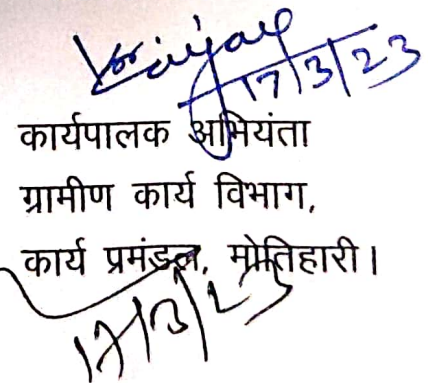 17/3/23
कार्यपालक अभियंता
ग्रामीण कार्य विभाग,
कार्य प्रमंडल, मोतिहारी।
17/3/23